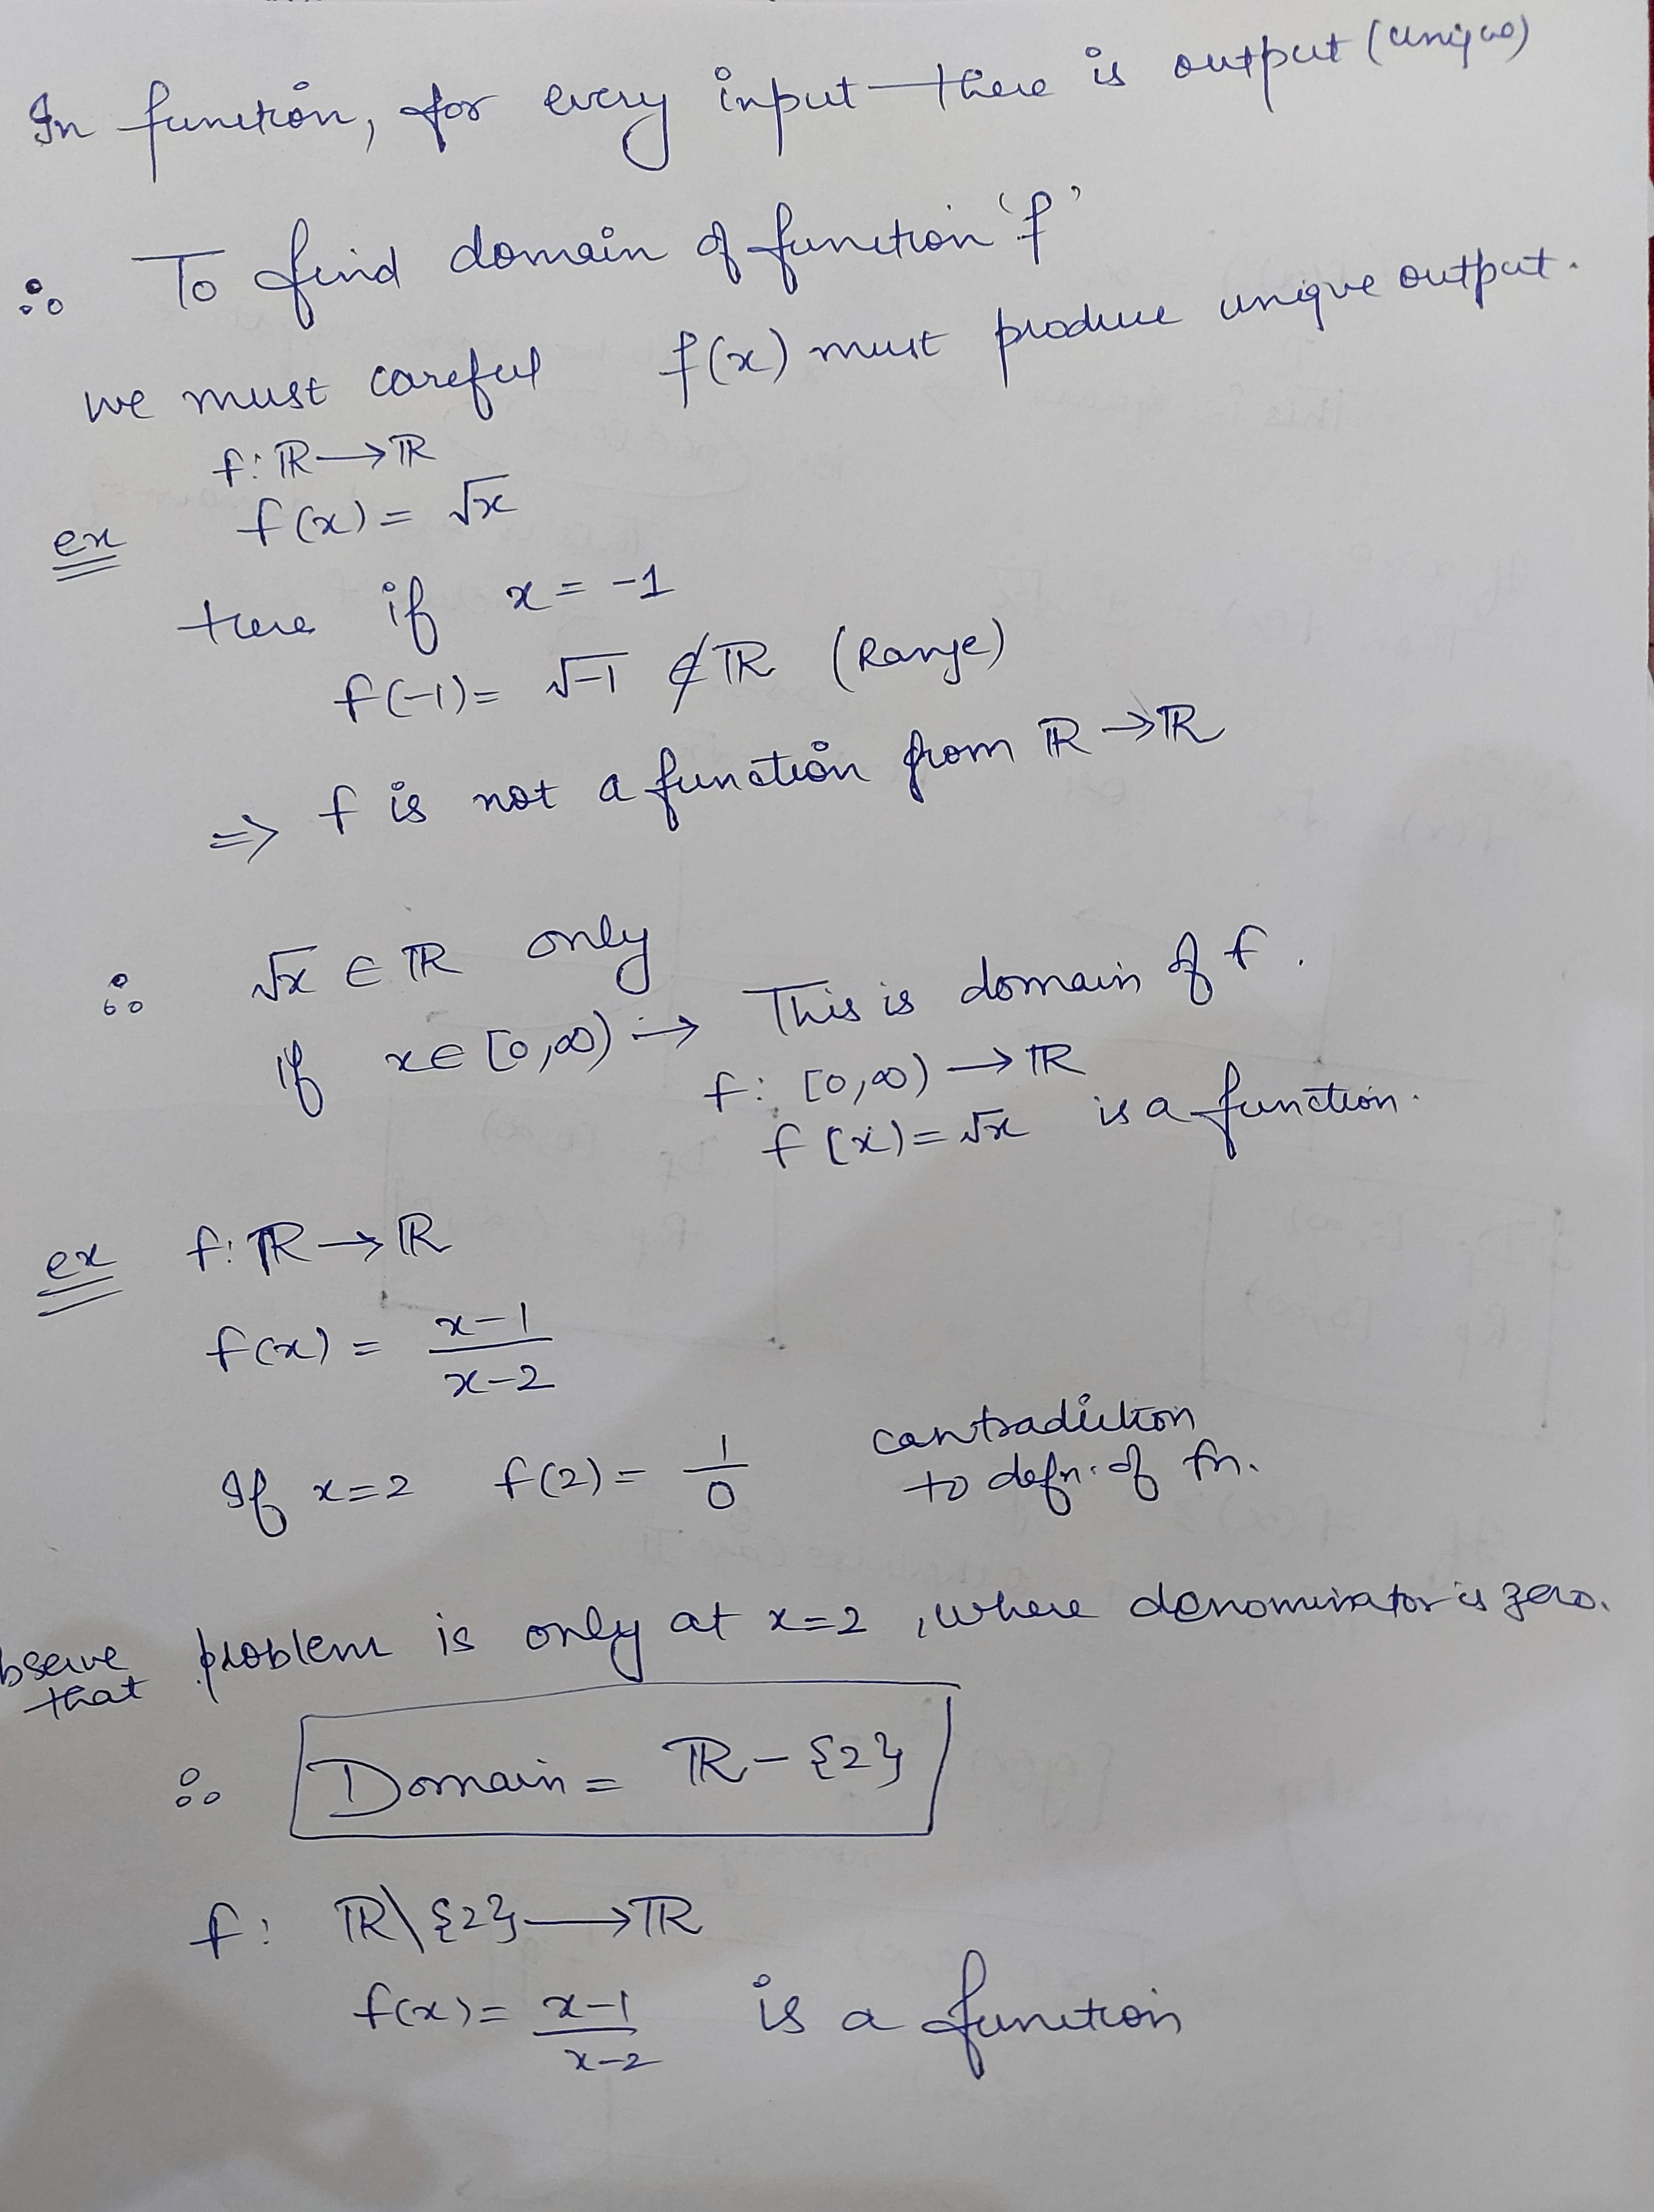 In function, for every input there is output (unique)
∴ To find domain of function 'f'
we must careful f(x) must produce unique output.
f: ℝ → ℝ
ex f(x) = √x
here if x = -1
f(-1) = √-1 ∉ ℝ (Range)
⇒ f is not a function from ℝ → ℝ
∴ √x ∈ ℝ only
if x ∈ [0,∞) → This is domain of f.
f: [0,∞) → ℝ
f(x) = √x is a function.
ex f: ℝ → ℝ
f(x) = x-1 / x-2
If x=2 f(2) = 1/0 contradiction
to defn. of fn.
bserve that problem is only at x=2, where denominator is zero.
∴ Domain = ℝ - {2}
f: ℝ\{2} → ℝ
f(x) = x-1 / x-2 is a function